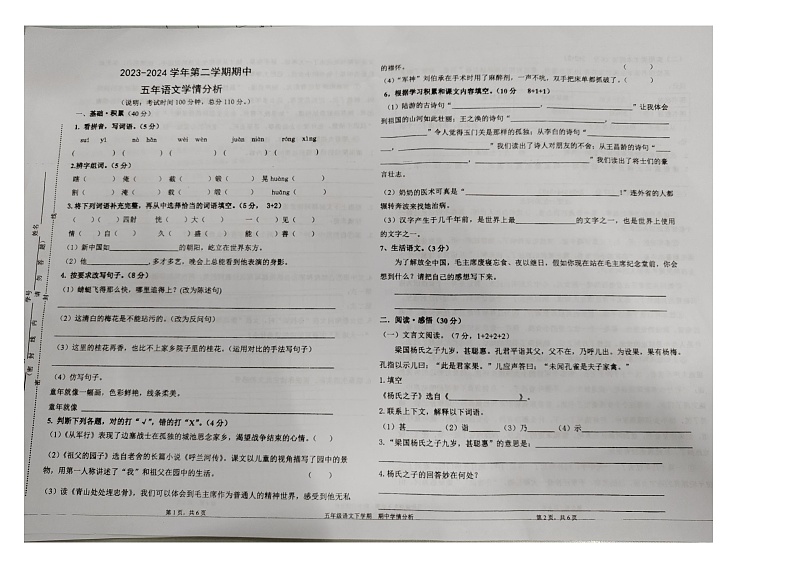 2023-2024 学年第二学期期中
五年语文学情分析
(说明:考试时间 100 分钟,总分 110 分。)
一、基础·积累(40 分)
1. 看拼音,写词语。(5 分)
suí yì nà hǎn wèi wèn juàn niàn róng xìng
( ) ( ) ( ) ( ) ( )
2.辨字组词。(5 分)
( ) ( ) ( ) ( ) 晃 huàng( )
荆( ) 淹( ) 载( ) 锻( ) huǎng( )
3.将下列词语补充完整,再从中选择恰当的词语填空。(5 分, 3+2)
( )( )四射 恍( )大( ) 一( )见( )
情( )自( ) 久( )盛( ) 能( )善( )
(1)新中国如________的朝阳,屹立在世界东方。
(2)他________,多才多艺,晚会上总能看到他表演的身影。
4. 按要求改写句子。(8 分)
(1)蜻蜓飞得那么快,哪里追得上?(改为陈述句)
(2)这清白的梅花是不能玷污的。(改为反问句)
(3)这里的桂花再香,也比不上家乡院子里的桂花。(运用对比的手法写句子)
(4)仿写句子。
童年就像一幅画,色彩鲜艳,线条柔美。
童年就像________
5. 判断下列各题,对的打“√”,错的打“X”。(4 分)
(1)《从军行》表现了边塞战士在孤独的城池思念家乡,渴望战争结束的心情。( )
(2)《祖父的园子》选自老舍的长篇小说《呼兰河传》。课文以儿童的视角描写了园中的景
物,用第一人称讲述了“我”和祖父在园中的生活。 ( )
(3)读《青山处处埋忠骨》,我们可以体会到毛主席作为普通人的精神世界,感受到他无私
第 1 页,共 6 页
的襟怀。 ( )
(4)“军神”刘伯承在手术时用了麻醉剂,一声不吭,双手把床单都抓破了。( )
6、根据学习积累和课文内容填空。(10 分 8+1+1)
(1)陆游的古诗句“________,________”让我体会
到祖国的山河如此壮丽;王之涣的诗句“________,
________”令人觉得玉门关是那样的孤独;从李白的诗句“________
________,________”我们读出了诗人对朋友的不舍;从王昌龄的诗句“____
________,________”我们读出了将士们的豪
言壮志。
(2)奶奶的医术可真是“________!”连外省的人都
辗转奔波来找她治病。
(3)汉字产生于几千年前,是世界上最________的文字之一,也是世界上使用
的文字之一。
7、生活语文。(3 分)
为了解放全中国,毛主席废寝忘食、夜以继日,假如你现在站在毛主席纪念堂前,你会
想到什么?请把自己的感想写下来。
二、阅读·感悟(30 分)
(一)文言文阅读。(7 分,1+2+2+2)
梁国杨氏子九岁,甚聪惠。孔君平诣其父,父不在,乃呼儿出。为设果,果有杨梅。
孔指以示儿曰:“此是君家果。”儿应声答曰:“未闻孔雀是夫子家禽。”
1.填空
《杨氏之子》选自《________》。
2.联系上下文,解释以下词语。
(1)甚______(2)诣______(3)乃______(4)示________
3.“梁国杨氏子九岁,甚聪惠”的意思是:
4.杨氏之子的回答妙在何处?
五年级语文下学期 期中学情分析
第 2 页,共 6 页